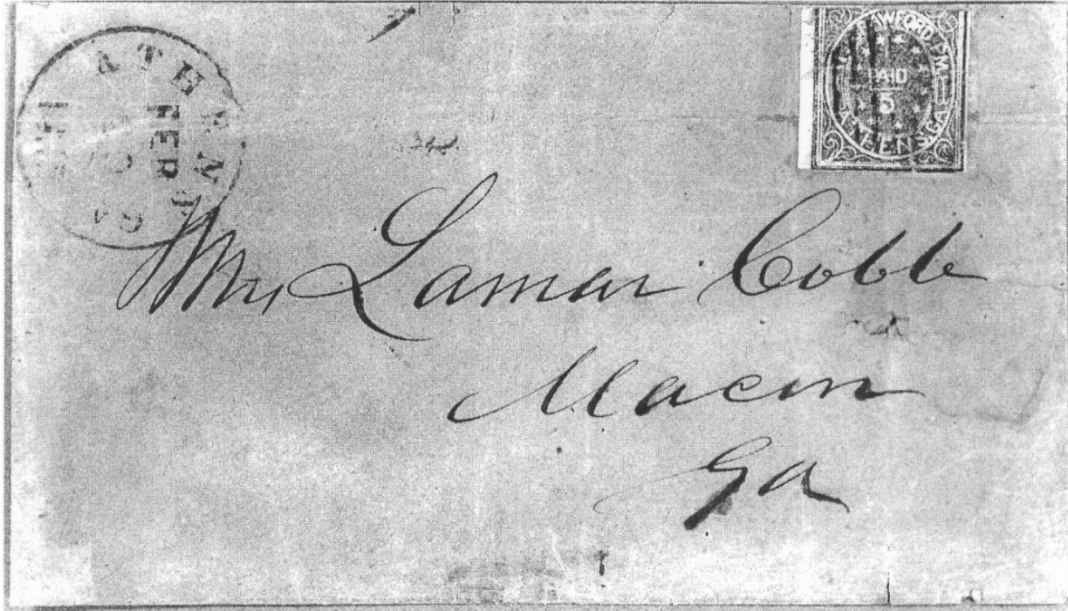 ATHENS GA
FEB
CRAWFORD P.M.
PAID
5
ATHENS GA.
Mrs Lamar Cobb
Macon
Ga